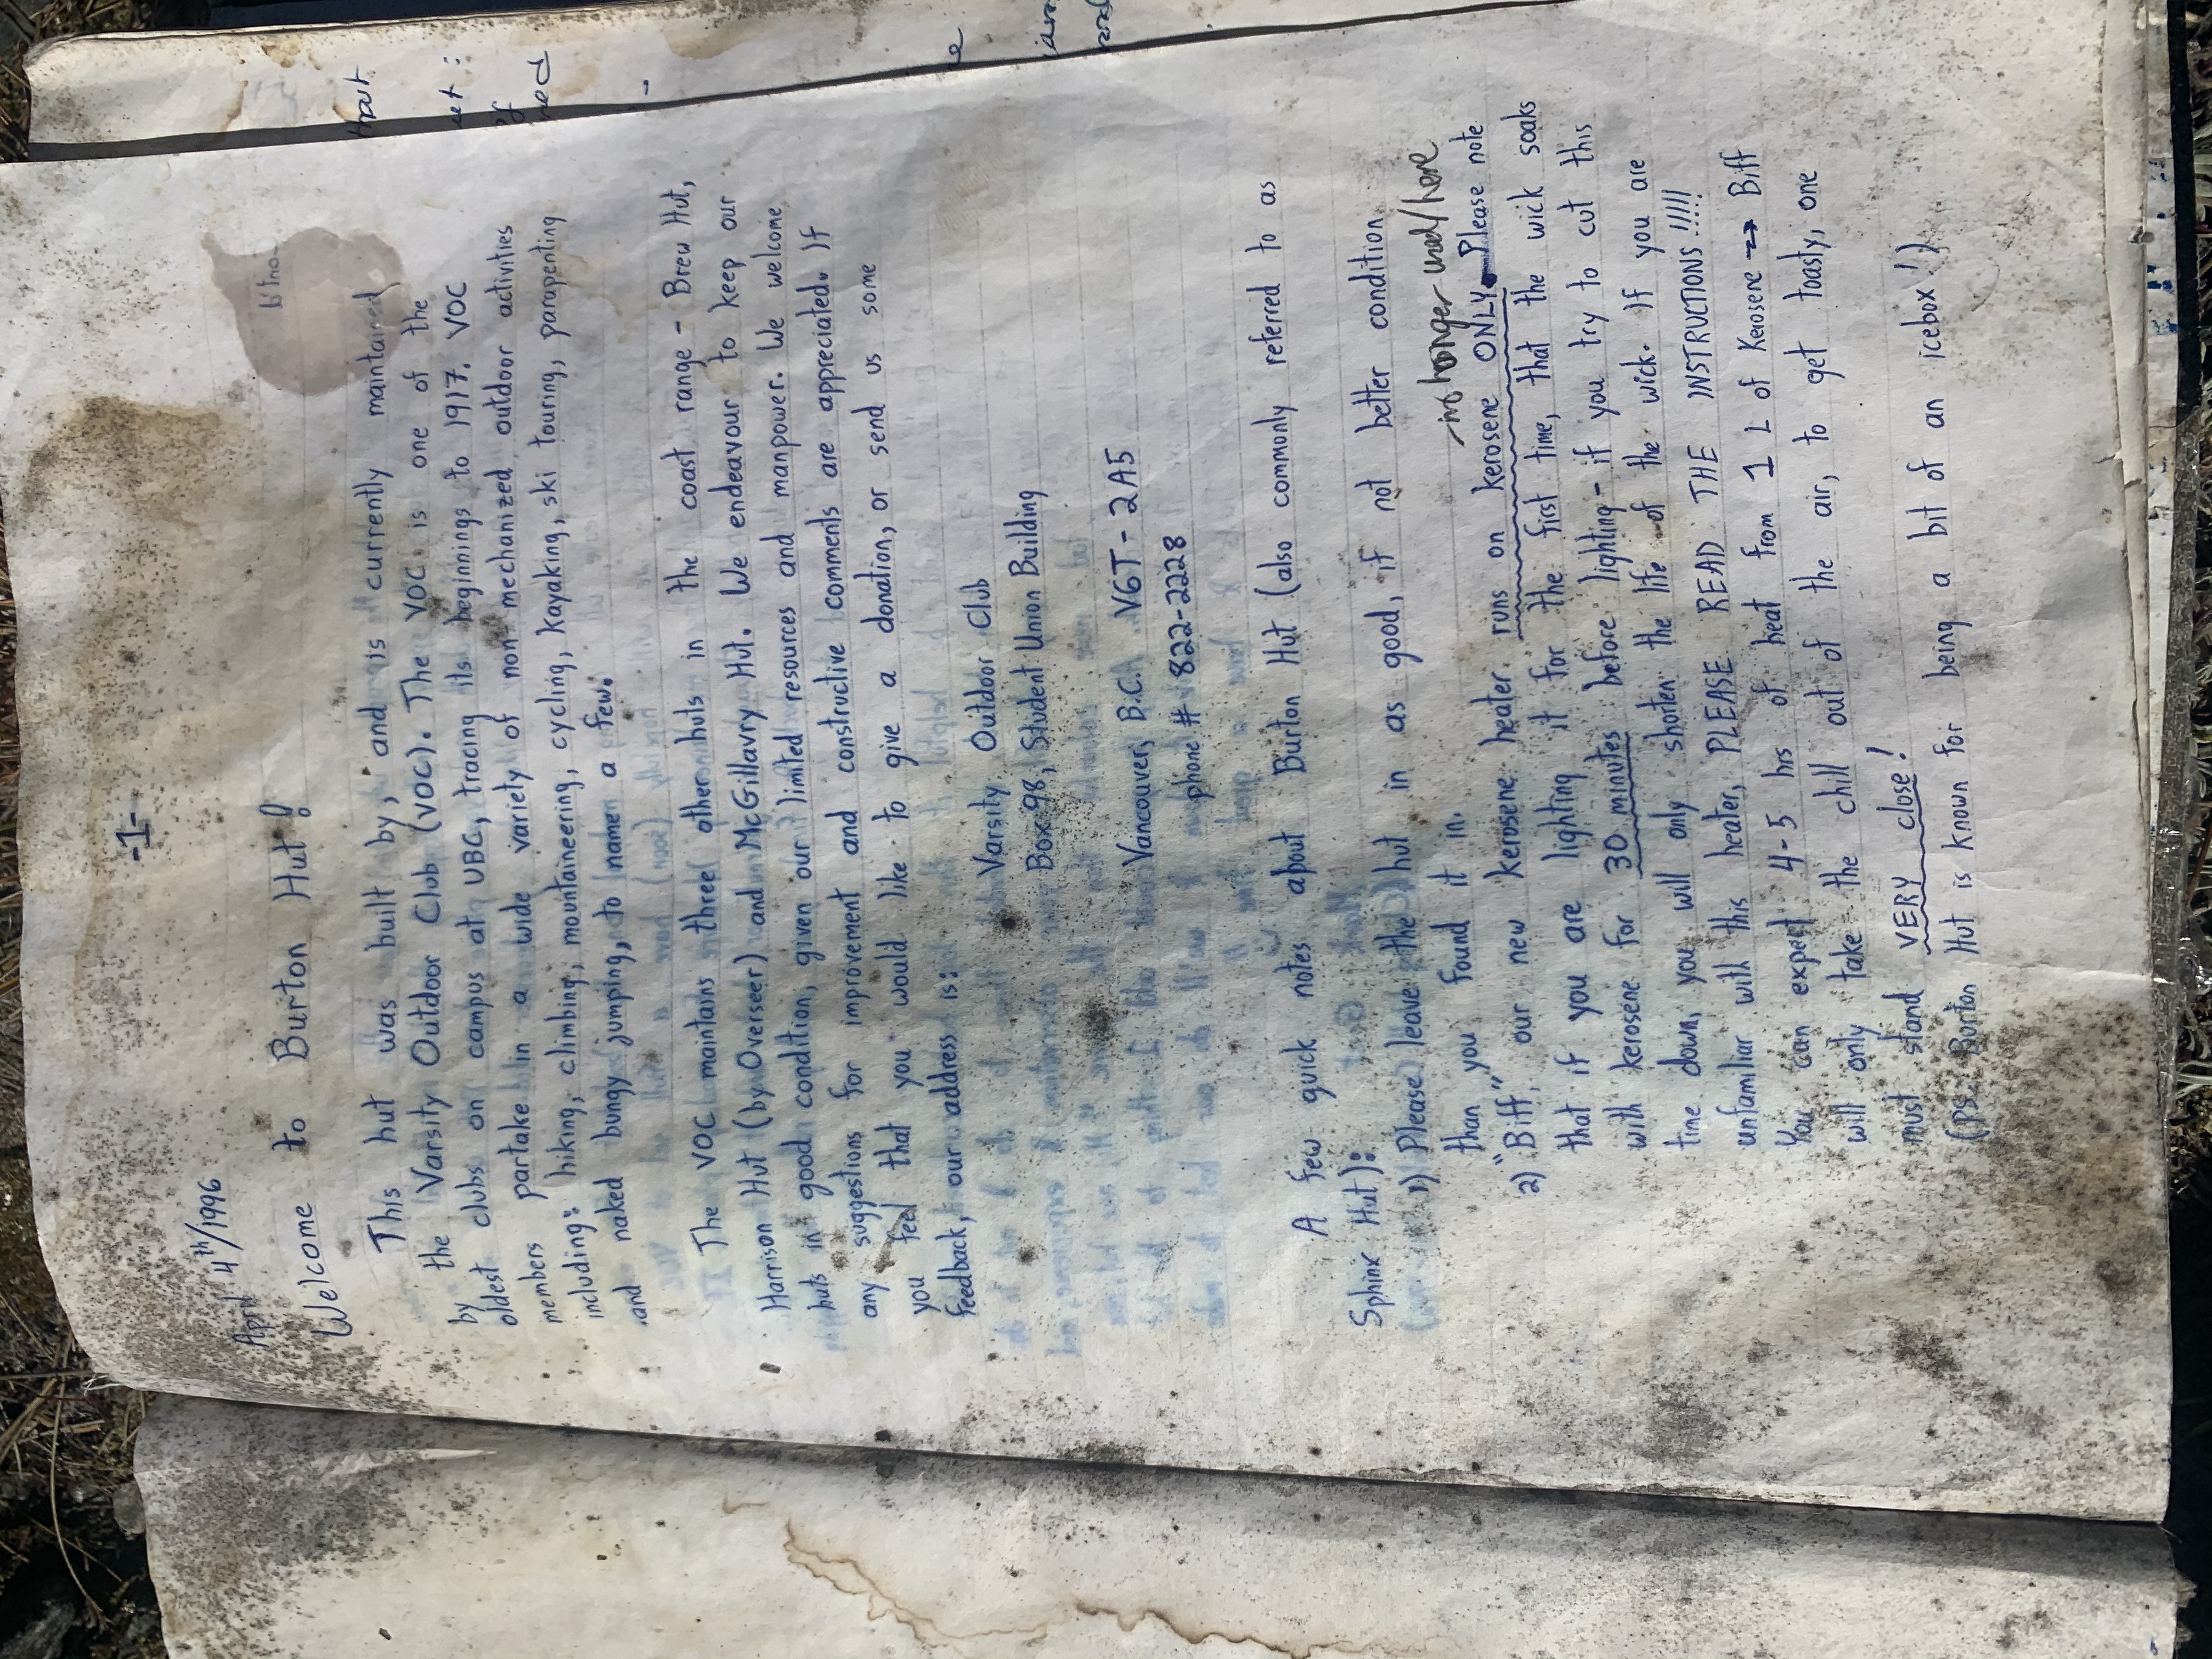 -1-
April 4th/1996
Welcome to Burton Hut!
This hut was built by, and is currently maintained
by the Varsity Outdoor Club (VOC). The VOC is one of the
oldest clubs on campus at UBC, tracing its beginnings to 1917. VOC
members partake in a wide variety of non-mechanized outdoor activities
including: hiking, climbing, mountaineering, cycling, kayaking, ski touring, parapenting
and naked bungy jumping, to name a few.
The VOC maintains three other huts in the coast range - Brew Hut,
Harrison Hut (by Overseer) and McGillavry Hut. We endeavour to keep our
huts in good condition, given our limited resources and manpower. We welcome
any suggestions for improvement and constructive comments are appreciated. If
you feel that you would like to give a donation, or send us some
feedback, our address is:
Varsity Outdoor Club
Box 98, Student Union Building
Vancouver, B.C. V6T-2A5
phone # 822-2228
A few quick notes about Burton Hut (also commonly referred to as
Sphinx Hut):
1) Please leave the hut in as good, if not better condition
than you found it in.
- no longer used/here
2) "Biff", our new kerosene heater runs on kerosene ONLY. Please note
that if you are lighting it for the first time, that the wick soaks
with kerosene for 30 minutes before lighting - if you try to cut this
time down, you will only shorten the life of the wick. If you are
unfamiliar with this heater, PLEASE READ THE INSTRUCTIONS !!!!!
You can expect 4-5 hrs of heat from 1 L of Kerosene → Biff
will only take the chill out of the air, to get toasty, one
must stand VERY close!
(PS. Burton Hut is known for being a bit of an icebox!)